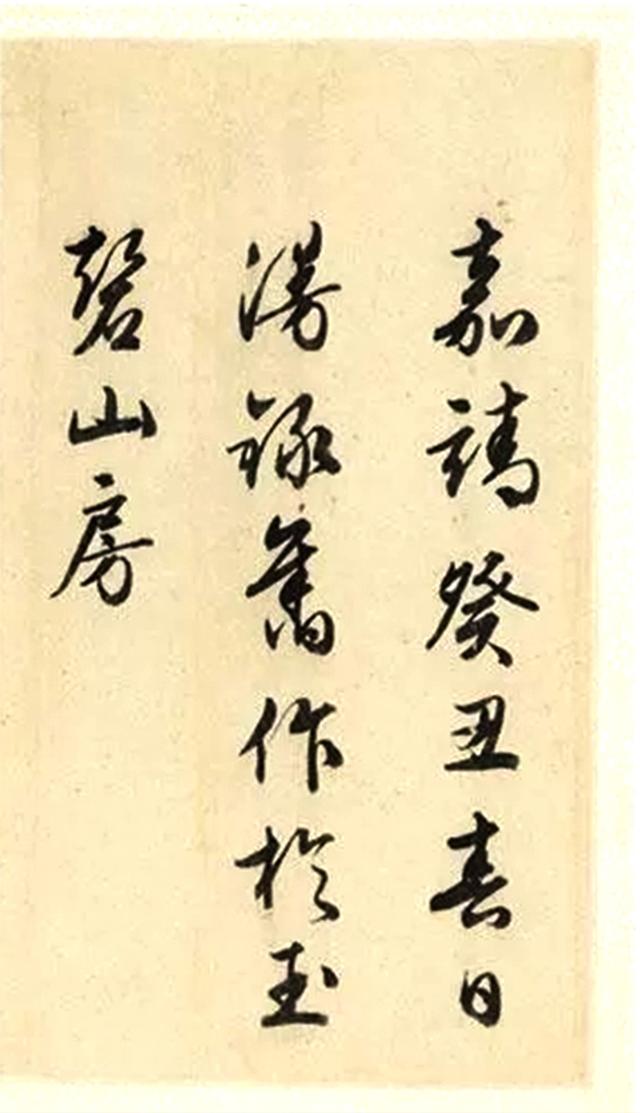 嘉靖癸丑春日
漫錄舊作於玉
磬山房